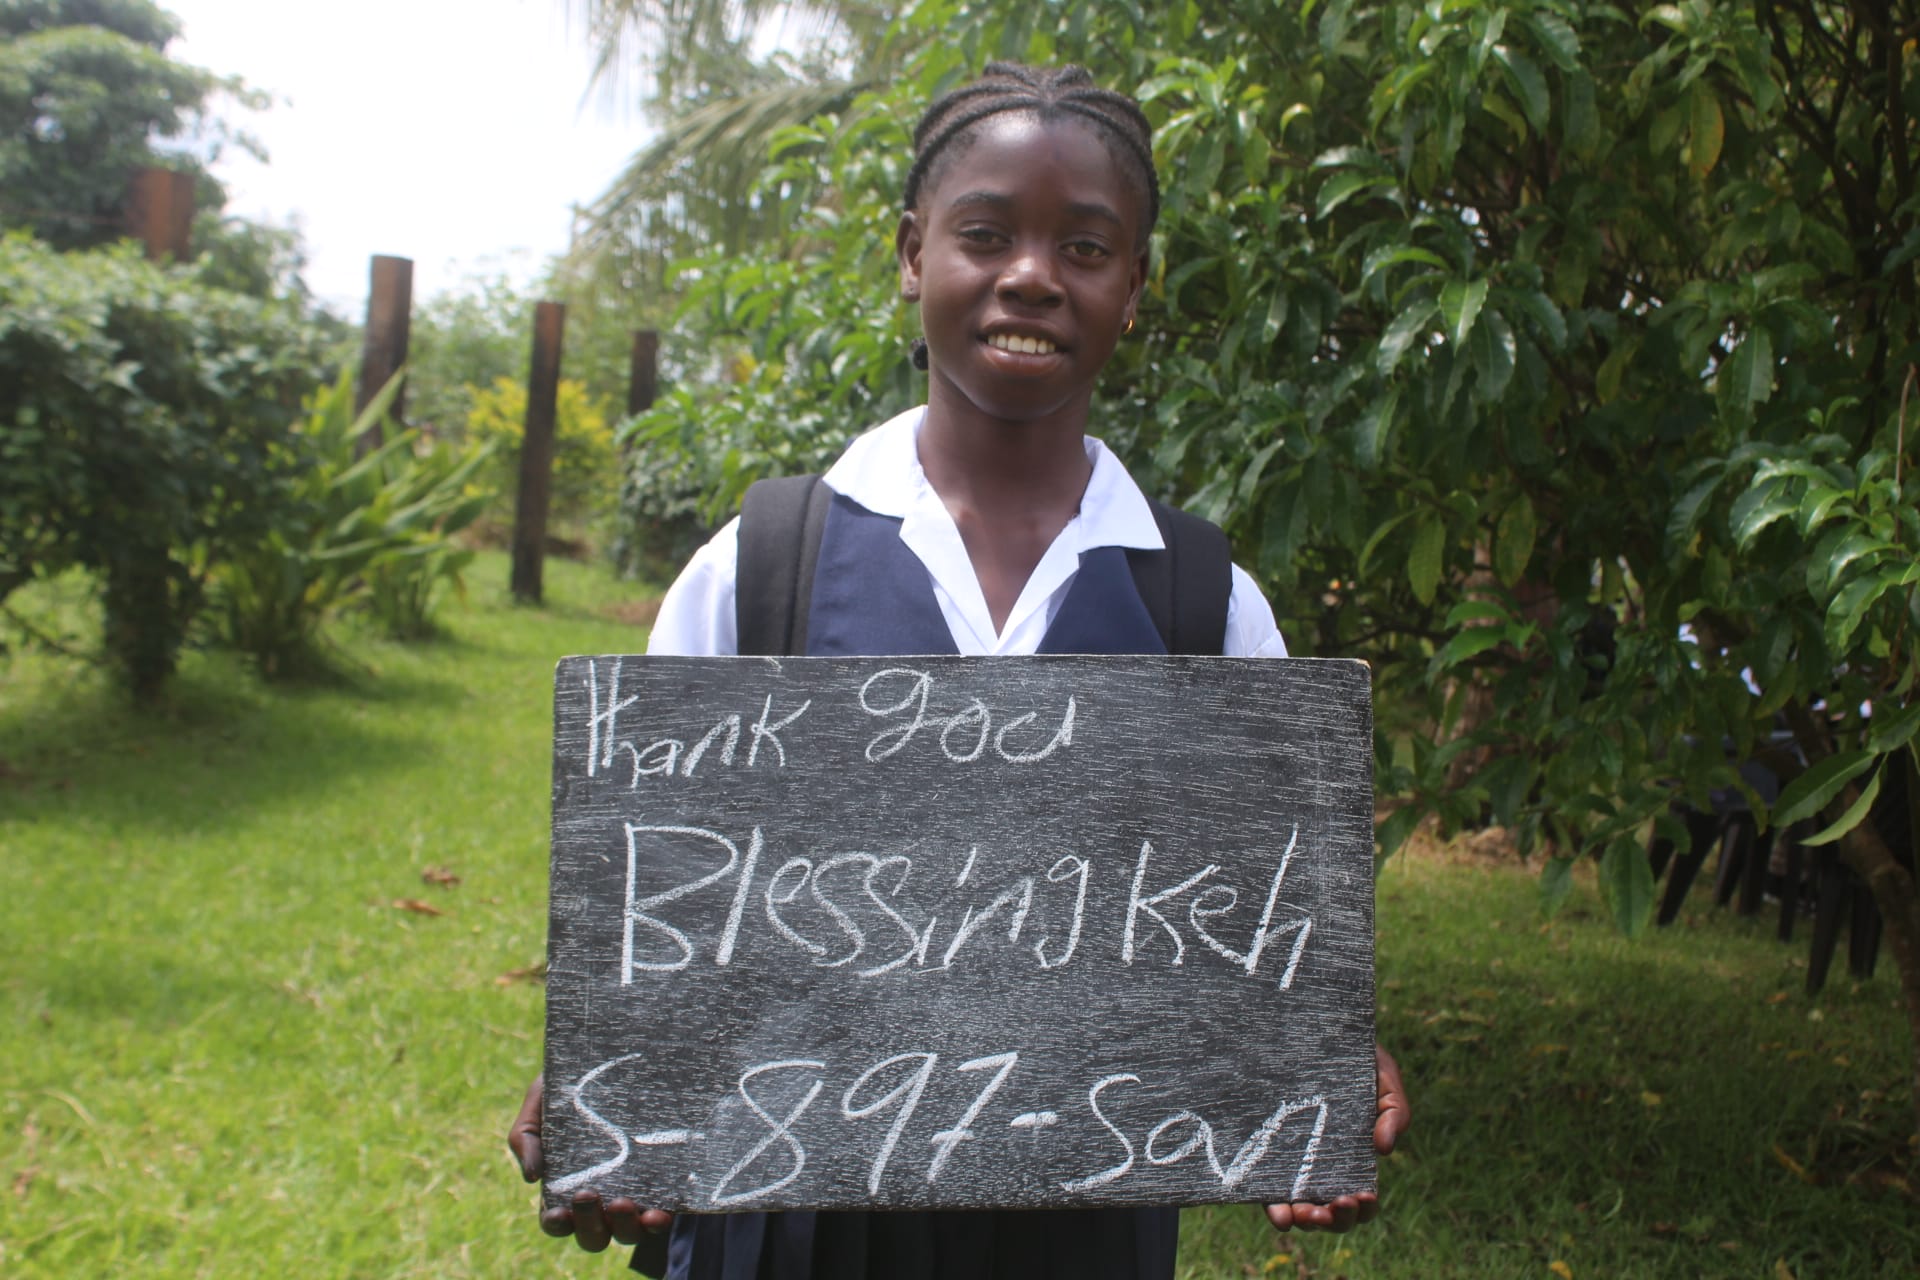 Thank god
Blessing Keh
S-897-San